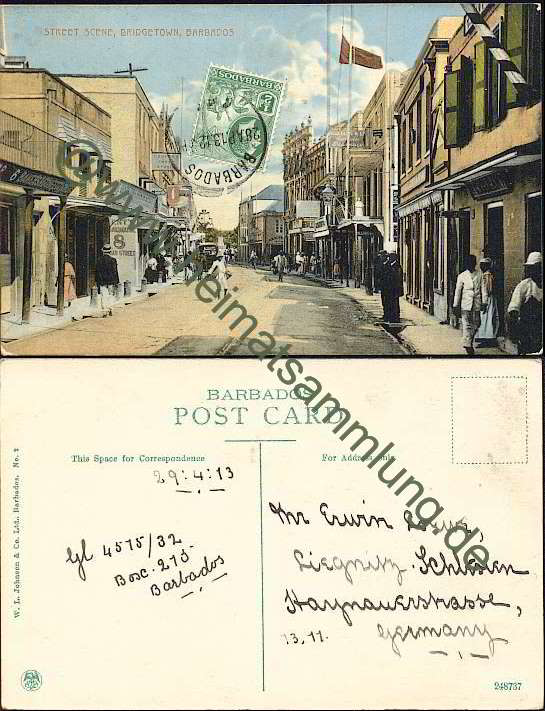 STREET SCENE, BRIDGETOWN, BARBADOS
BARBADOS
BARBADOS
8
© www.heimatsammlung.de
BARBADOS
POST CARD
This Space for Correspondence
For Address only
29:4:13
Gl 4575/32
Bosc. 275
Barbados
Mr Erwin
Liegnitz. Schlesien
Haynauerstrasse,
13.11.
Germany
W. L. Johnson & Co. Ltd., Barbados. No. 2
248737